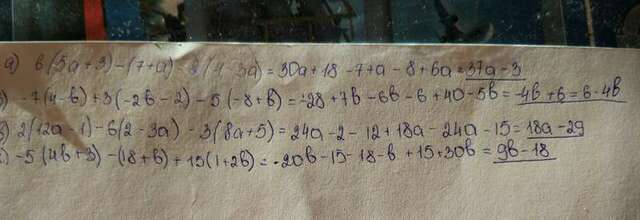 а) 6(5a+3)-(7+a) - 2(4-3a)=30a+18-7+a-8+6a=37a-3
-7(4-b)+3(-2b-2)-5(-8+b)=-28+7b-6b-6+40-5b=-4b+6=6-4b
2(12a-1)-6(2-3a)-3(8a+5)=24a-2-12+18a-24a-15=18a-29
-5(4b+3)-(18+b)+15(1+2b)=-20b-15-18-b+15+30b=9b-18